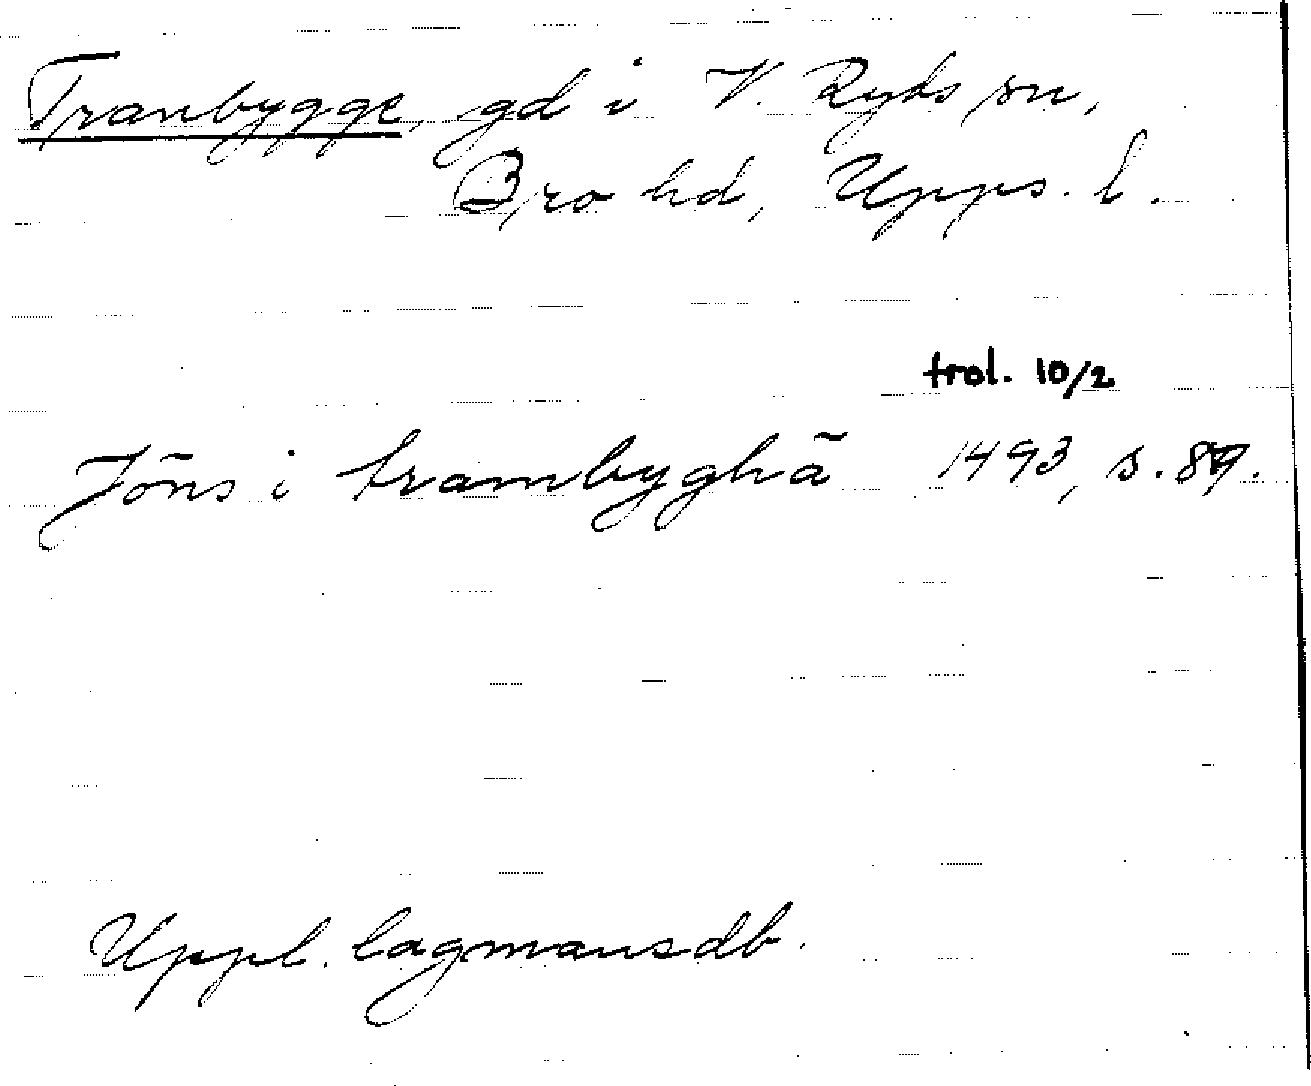 Tranbygge, gd i V. Ryds sn,
Bro hd, Upps. l.
trol. 10/2
Jōns i trambyghā 1493, s. 89.
Uppl. lagmansdb.